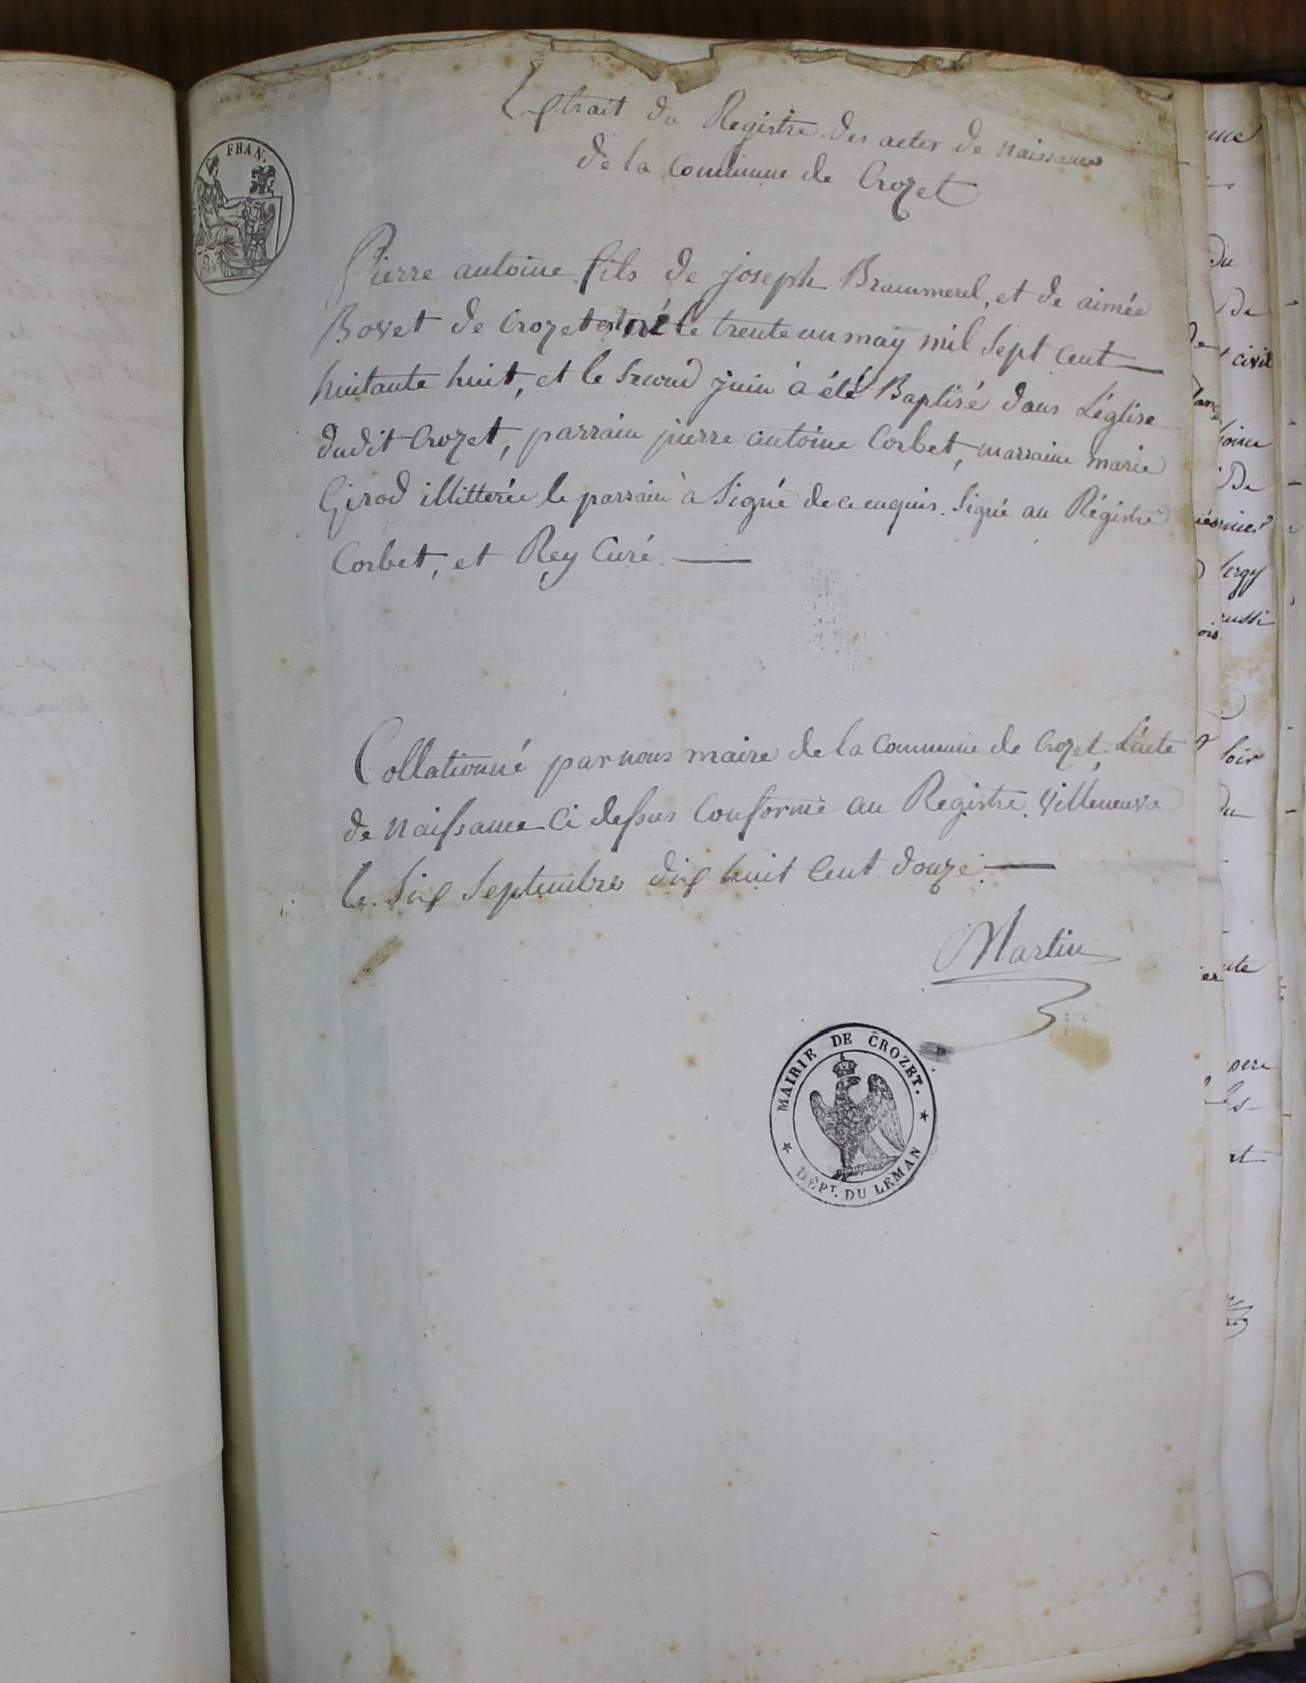 FRAN.
Extrait du Registre des actes de naissances
de la Commune de Crozet
Pierre antoine fils de joseph Brammerel, et de aimée
Bovet de Crozet est né le trente un may mil Sept Cent
huitante huit, et le Second juin à été Baptisé dans L'église
dudit Crozet, parrain pierre antoine Corbet, marraine marie
Girod illitterée le parrain à Signé de ce enquis. Signé au Régistre
Corbet, et Rey Curé.
Collationné par nous maire de la Commune de Crozet, L'acte
de Naissance Ci dessus Conforme au Registre. Villeneuve
le Six Septembre dix huit Cent douze.
Martin
MAIRIE DE CROZET.
DÉPT. DU LÉMAN